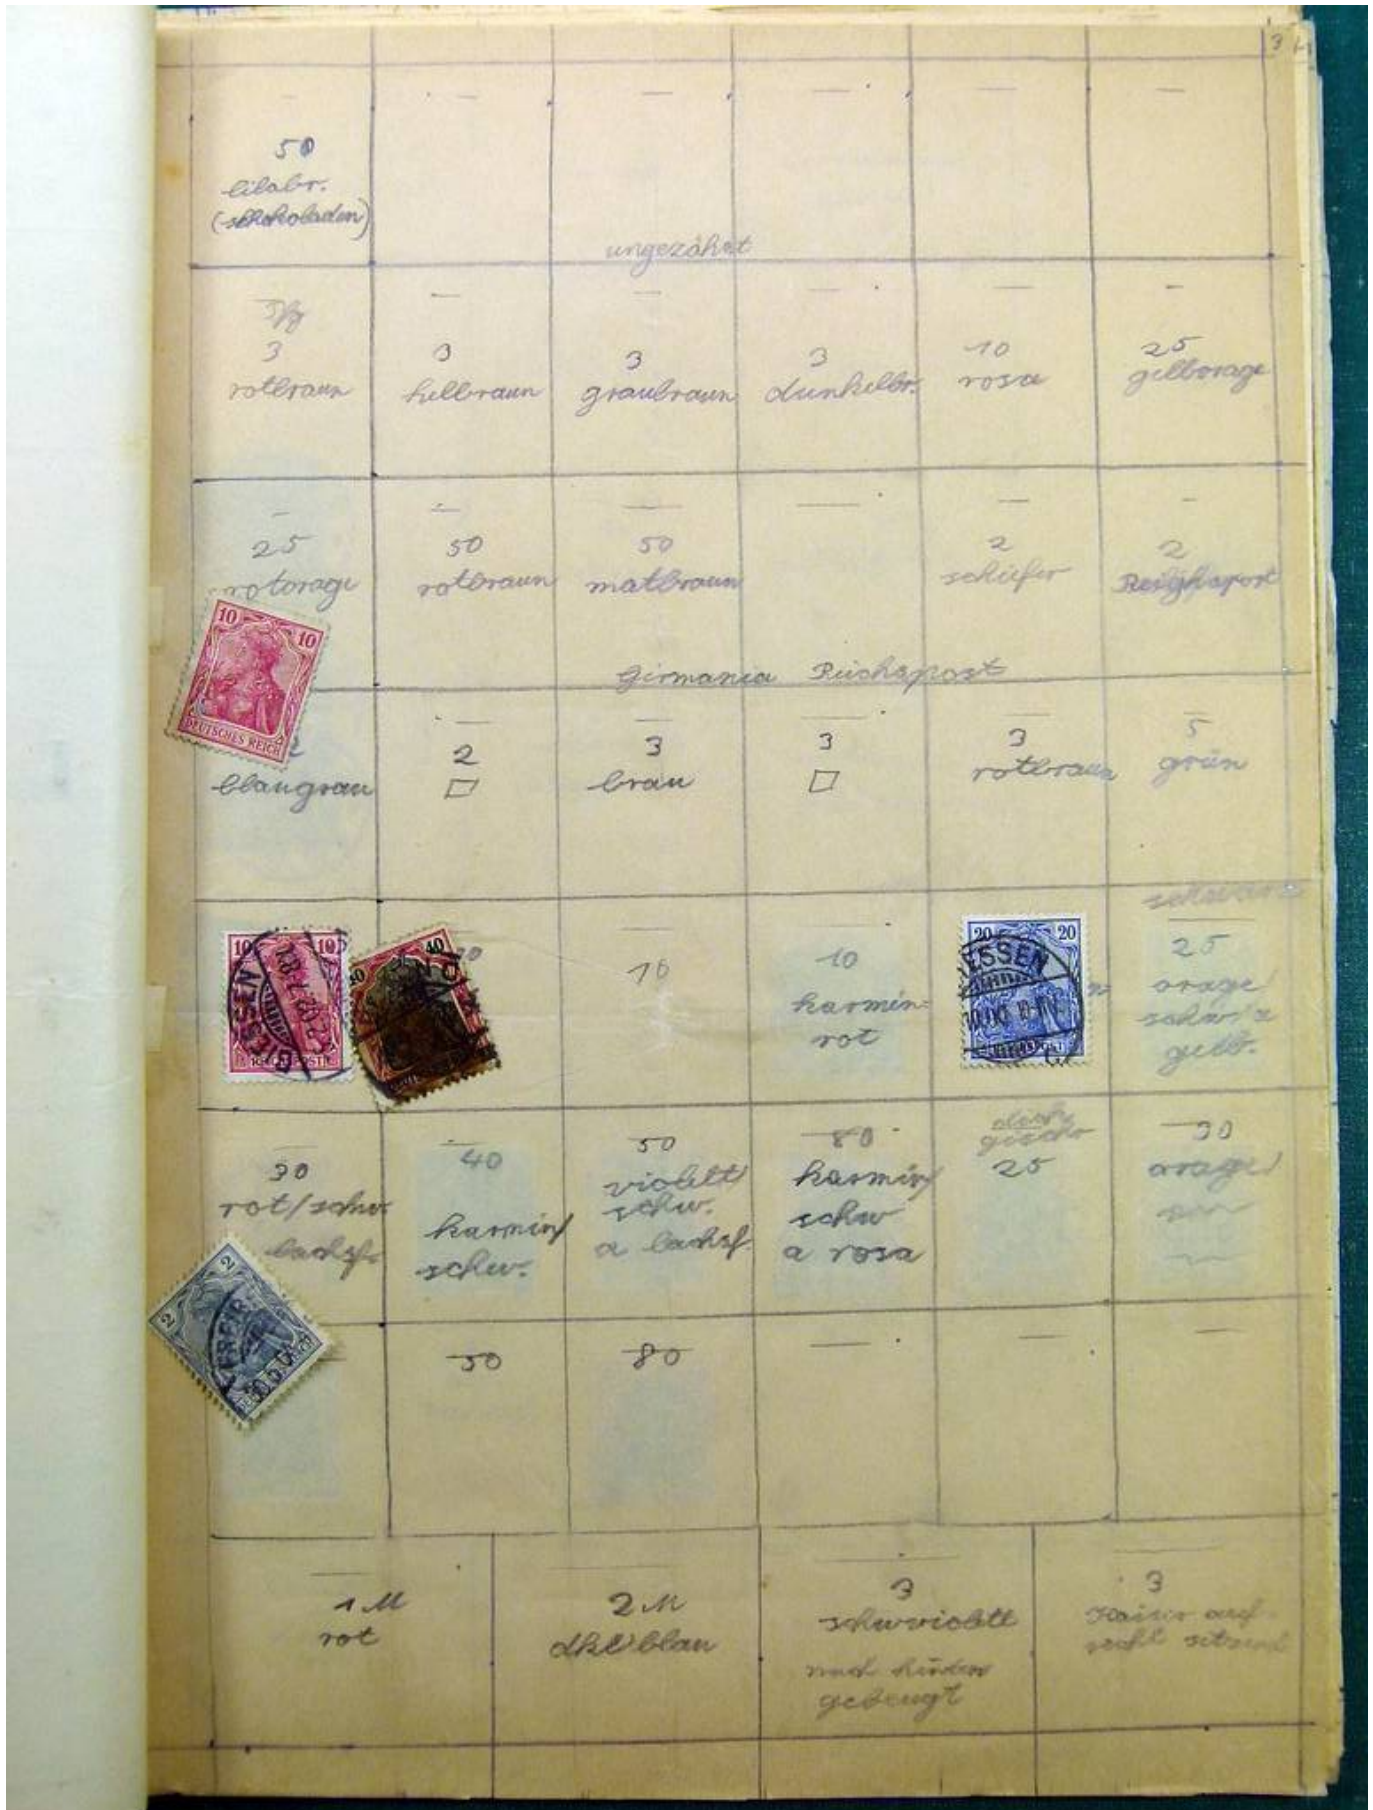 3
50
lilabr.
(schokoladen)
ungezähnt
3
rotbraun
3
hellbraun
3
graubraun
3
dunkelbr.
10
rosa
25
gelborage
25
rotorage
50
rotbraun
50
matbraun
2
schiefer
2
Reichspost
Girmania Reichspost
10 10
DEUTSCHES REICH
blaugrau
2
3
brau
3
3
rotbraun
5
grün
10 10
GIESSEN
REICHSPOST
40
10
10
karmin-
rot
20 20
REICHSPOST
25
orage/
schw/a
gelb.
30
rot/schw.
lachsf.
40
karmin/
schw.
50
violett/
schw.
a lachsf.
80
karmin/
schw
a rosa
25
30
orage/
2 2
50
80
1 M
rot
2 M
dkl blau
3
schwviolett
nach hinten
gebeugt
3
Kaiser auf-
recht sitzend